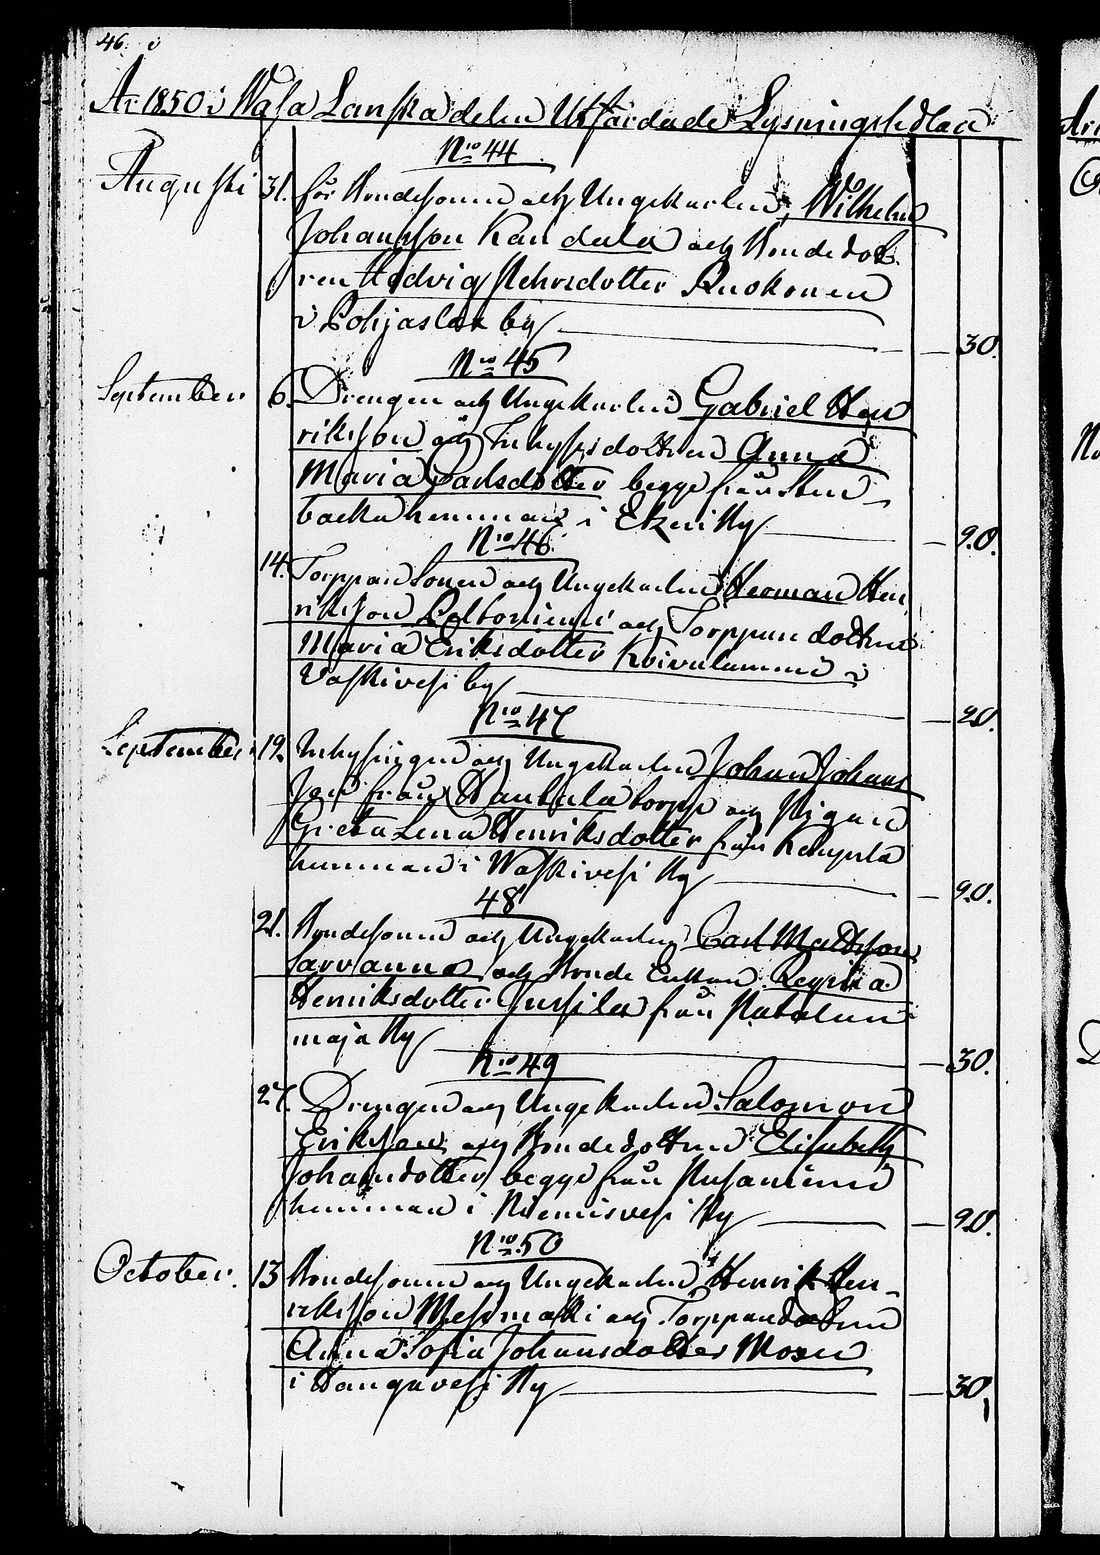 46.
År 1850 i Wasa Länska delen Utfärdade Lysningssedlar
N:ro 44
Augusti 31. för Bondesonen och Ungekarlen, Wilhelm
Johansson Kandala och Bondedott
ren Hedvig Mehrsdotter Ruokonen
i Pohjaslax by — 30.
N:ro 45
September 6. Drengen och Ungekarlen Gabriel Hen
riksson och Inhysesdottren Anna
Maria Carlsdotter begge från Sten
backa hemman i Etzeri By — 90.
N:ro 46.
14. Torppar Sonen och Ungekarlen Herman Hen
riksson Peltoniemi och Torppare dottren
Maria Eriksdotter Koivulammi i
Vaskivesi by — 20.
N:ro 47
September 19. Inhysingen och Ungekarlen Johan Johans
son från torpp och Pigan
Greta Lena Henriksdotter från
hemman i Waskivesi By — 90.
48
21. Bondesonen och Ungekarlen Carl Mattsson
Sarvanne och Bonde Enkan Regina
Henriksdotter Jussila från
maja By — 30.
N:ro 49
27. Drengen och Ungekarlen Salomon
Eriksson och Bondedottren Elisabeth
Johansdotter begge från
hemman i Niemisvesi By — 90.
N:ro 50
October. 13 Bondesonen och Ungekarlen Henrik Hen-
riksson och Torpparedottren
Anna Sofia Johansdotter Moxen
i Rangavesi By — 30.